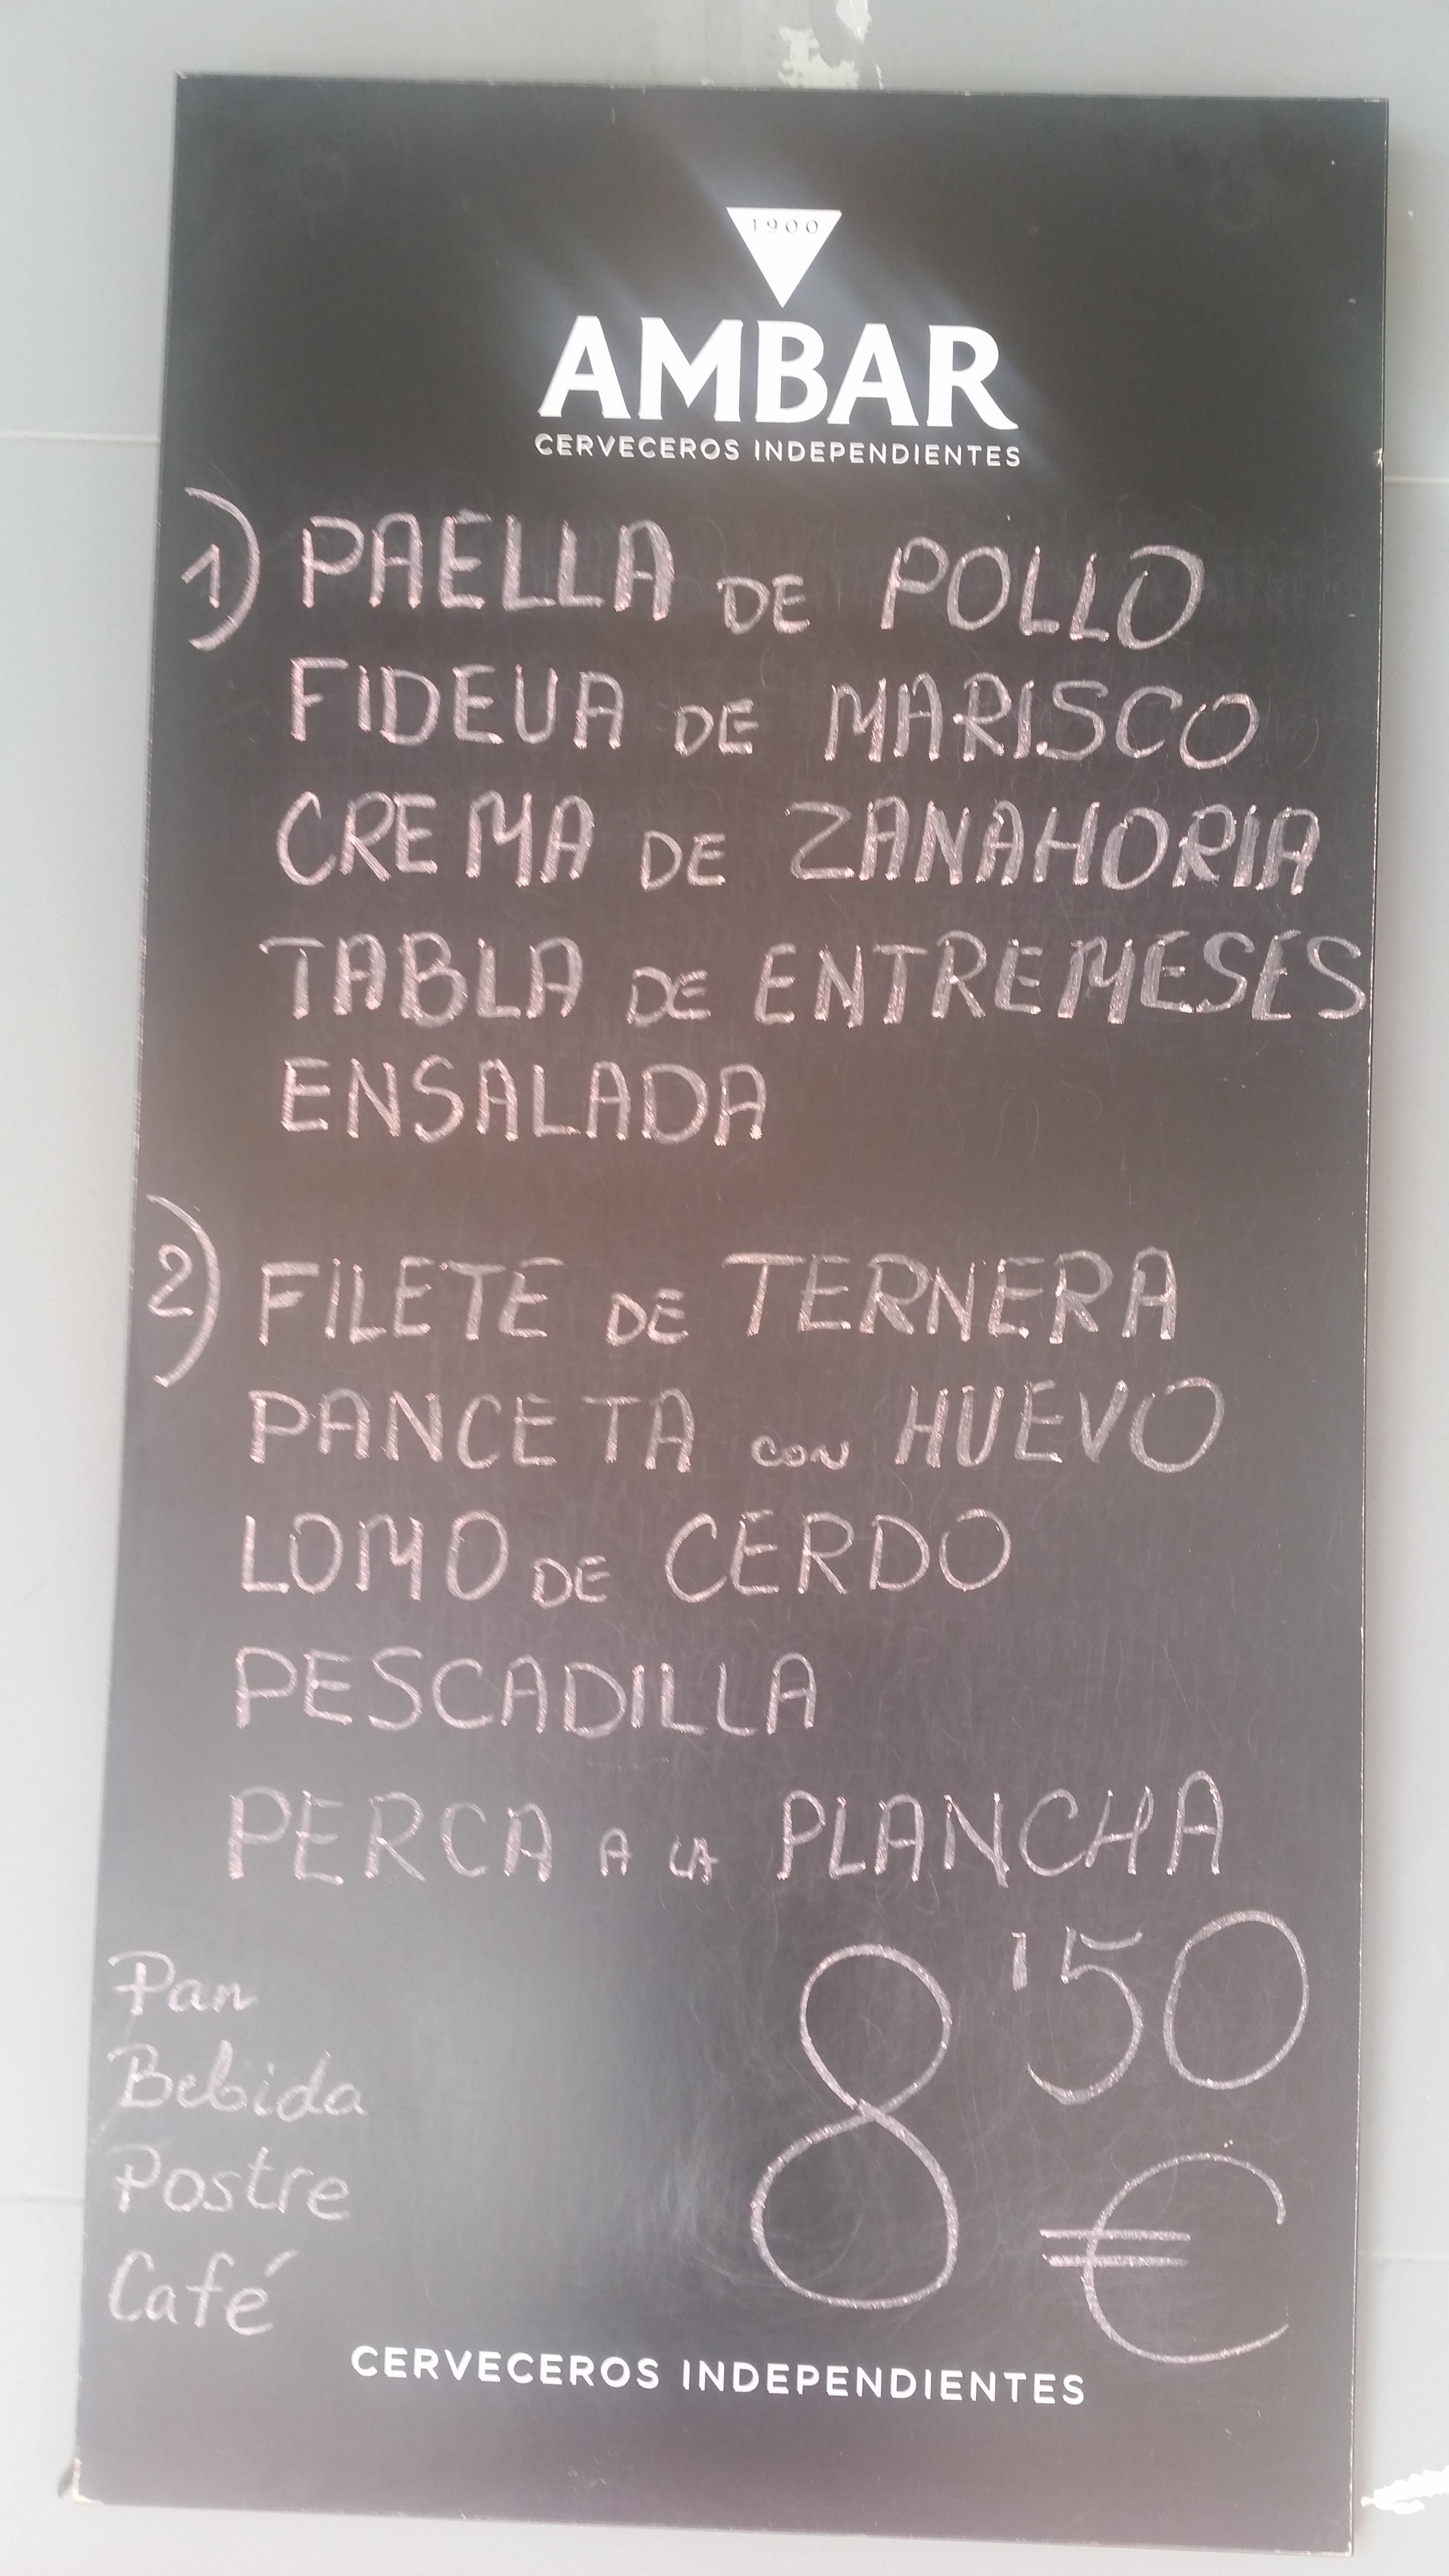 1900
AMBAR
CERVECEROS INDEPENDIENTES
1) PAELLA DE POLLO
FIDEUA DE MARISCO
CREMA DE ZANAHORIA
TABLA DE ENTREMESES
ENSALADA
2) FILETE DE TERNERA
PANCETA CON HUEVO
LOMO DE CERDO
PESCADILLA
PERCA A LA PLANCHA
Pan
Bebida
Postre
Café
8'50
€
CERVECEROS INDEPENDIENTES